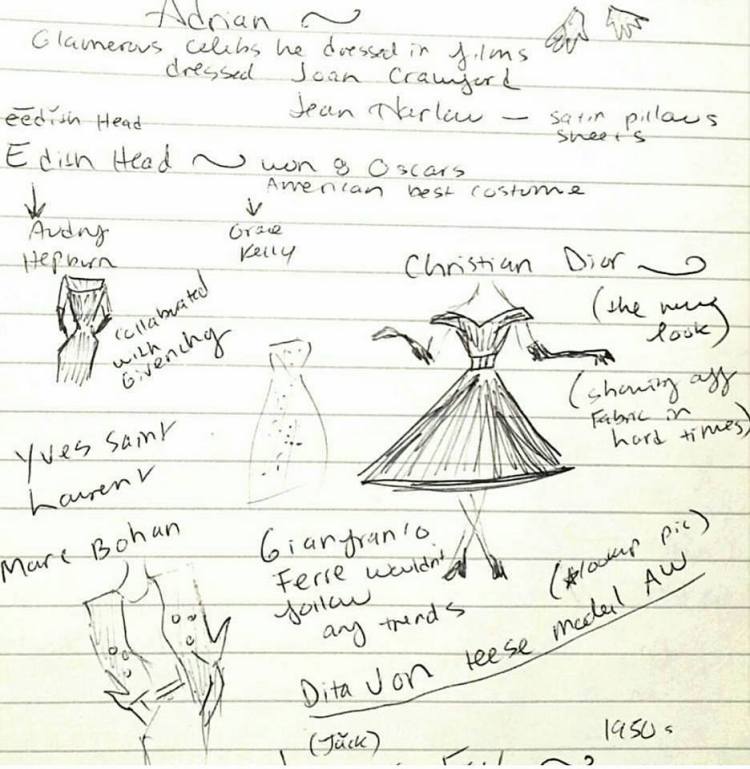 Adrian
Glamerous celebs he dressed in films
dressed Joan Crawford
Jean Harlow — satin pillows
sheets
ēēdish Head
Edish Head ~ won 8 Oscars
American best costume
Audry
Hepburn
Grace
Kelly
collaborated
with
Givenchy
Christian Dior
(the new
look)
(showing off
Fabric in
hard times)
Yves Saint
Laurent
Marc Bohan
Gianfran'o
Ferre wouldn't
follow
any trends
(lookup pic)
Dita Von teese model AW
1950s